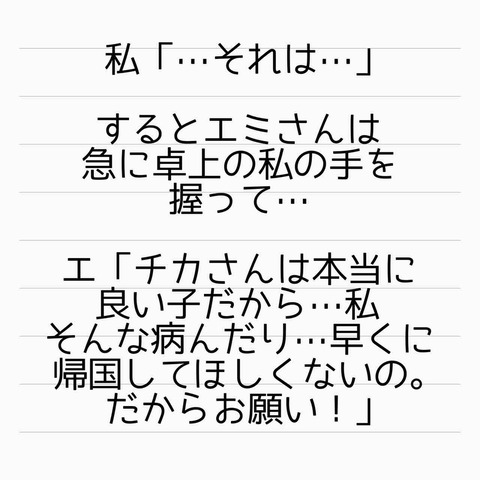 私「…それは…」
するとエミさんは
急に卓上の私の手を
握って…
エ「チカさんは本当に
良い子だから…私
そんな病んだり…早くに
帰国してほしくないの。
だからお願い！」